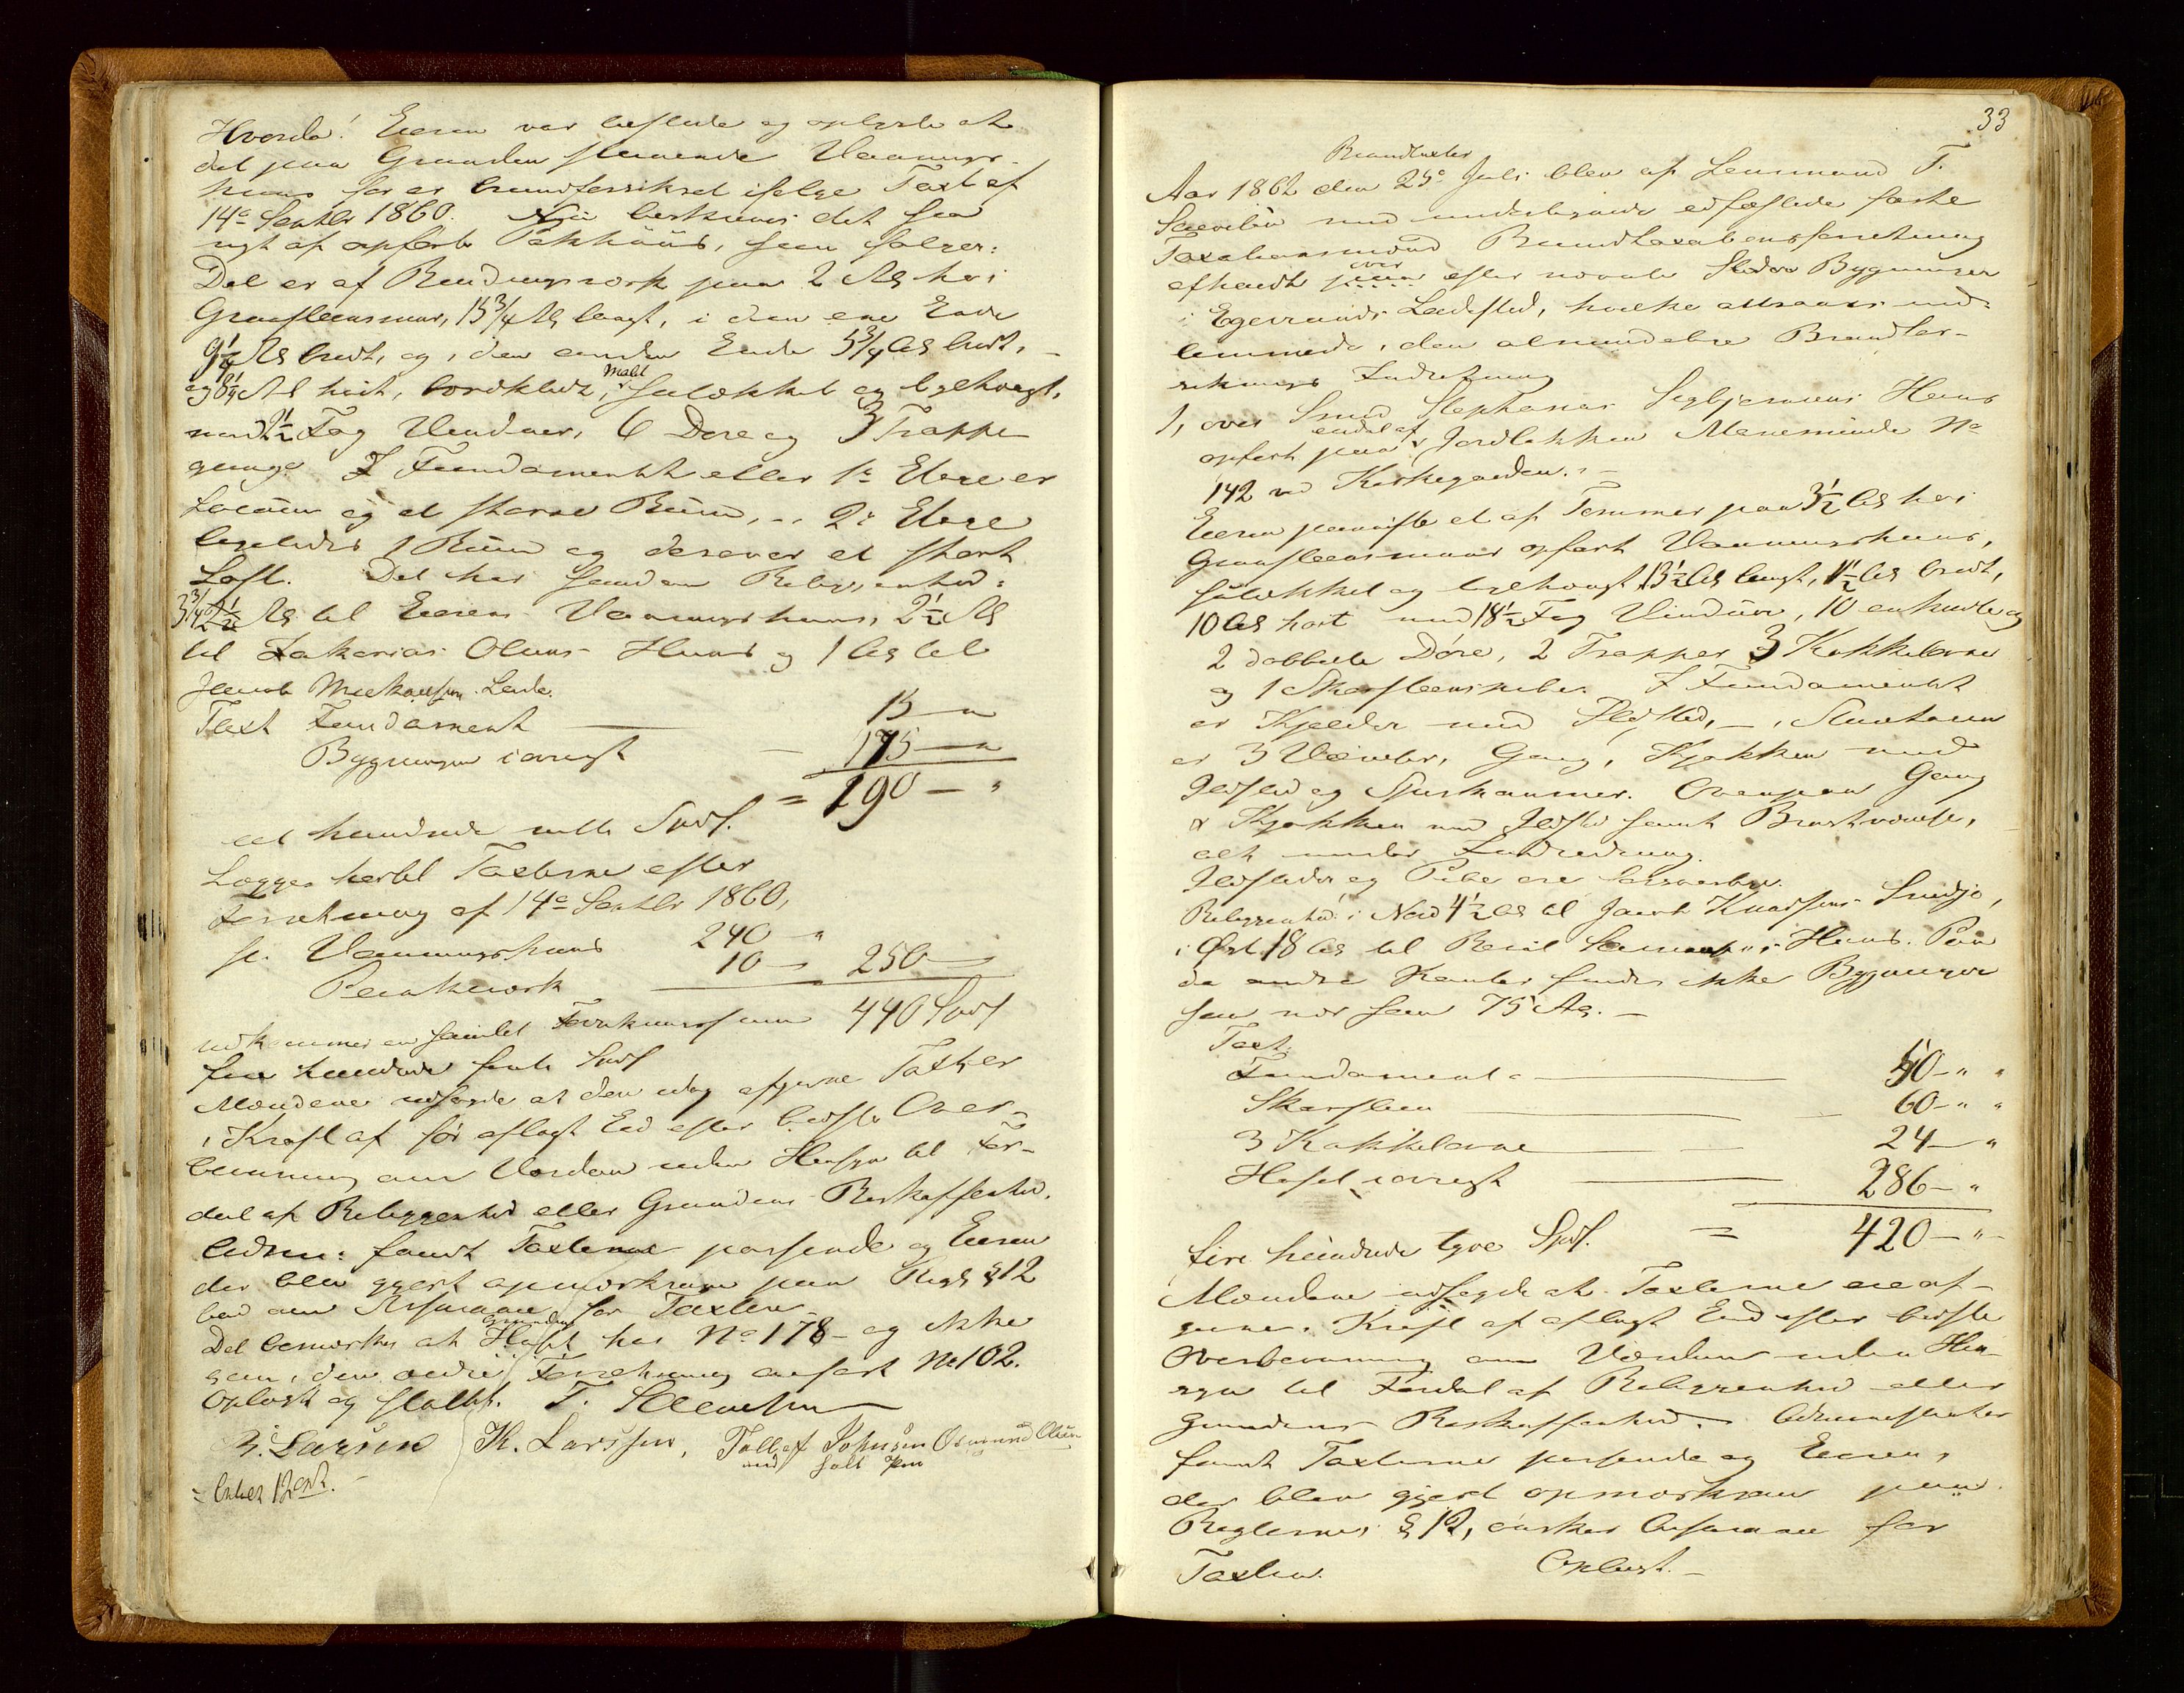 Hvorda! Eieren var tilstede og oplyste at
det paa Grunden staaende Vaanings-
huus før er brandforsikret ifølge Taxt af
14de Septbr 1860. Nu beskrives det
nyt af opførte Pakhuus, som følger:
Det er af Bindingsværk paa 2 Al. høi
Graasteensmuur, 15 3/4 Al. langt, i den ene Ende
9 1/4 Al. bredt, og i den anden Ende 5 3/4 Al. bredt,
og 8 1/4 Al høit, bordklædt, malt, sulækket og teglhængt,
med 2 1/2 Fag Vinduer, 6 Døre og 3 Trappe
gange I Fundamentet eller 1ste Etage er
Locum og et større Rum, i 2den Etage
ligeledes 1 Rum og derover et stort
Loft. Det har saadan Beliggenhed:
3 3/4 Al til Eierens Vaaningshuus, 2 1/2 Al
til Zakarias Olsens Huus og 1 Al. til
Jacob Mikaelsens Lade.
Taxt Fundament — 15 — "
Bygningen iøvrigt — 175 — "
= 190 — "
et hundrede nitti Spd.
Lægges hertil Taxterne efter
Forretning af 14de Septbr 1860,
for Vaaningshuus 240 — "
Penkeværk 10 — 250 —
udkommer en samlet Forsikringssum 440 Spd
fire hundrede firti Spd
Mændene udsagde at den idag afgivne Taxt er
i Kraft af før aflagt Eed efter bedste Over-
beviisning om Værdien uden Hensyn til For-
deel af Beliggenhed eller Grundens Beskaffenhed.
Lednm: fandt Taxterne passende og Eieren
der blev gjort opmærksom paa Regl. § 12
bad om Assurance for Taxten.
Det bemærkes at Huset Grunden har No 178 og ikke
som i den ældre Forretning anført No 102.
Oplæst og sluttet. T. Sleveland
B. Larsen K. Larssen, Tollef Johnsen Osmund Olsen
med holt Pen
= betalt 12 ort.

33
Brandtaxter
Aar 1862 den 25de Juli blev af Lensmand T.
Sleveland med underlegnede edfæstede faste
Taxationsmænd Brandtaxationsforretning
afholdt paa over efter nævnte Steders Bygninger
i Egersunds Ladested, hvilke attraaes ind-
lemmede i den almindelige Brandfor-
sikrings Indretning
1, over Smed Stephanus Segbjørnsens Huus
opført paa endel af Jordløkken Maneminde No
142 ved Kirkegaarden. —
Eieren paaviste et af Tømmer paa 3 1/2 Al. høi
Graasteensmuur opført Vaaningshuus,
sulækket og teglhængt 13 1/2 Al. langt, 11 1/2 Al. bredt,
10 Al. høit med 18 1/2 Fag Vinduer, 10 enkelte og
2 dobbelte Døre, 2 Trapper 3 Kakkelovne
og 1 Skorsteenspibe. I Fundamentet
er Kjelder med Ildsted, — i Stueetagen
er 3 Værelser, Gang, Kjøkken med
Ildsted og Spiskammer. Ovenpaa Gang
& Kjøkken med Ildsted samt Brystværelse,
alt under Indredning.
Ildsteder og Pibe ere forsvarlige.
Beliggenhed: i Nord 4 1/2 Al. til Jacob Knudsens Smedje,
i Øst 18 Al. til Huus. Paa
de andre Kanter findes ikke Bygninger
saa nær som 75 Al. —
Taxt.
Fundament — 50 — " "
Skorsteen — 60 — " "
3 Kakkelovne — 24 — "
Huset iøvrigt — 286 — "
fire hundrede tyve Spd. = 420 — "
Mændene udsagde at Taxterne ere af-
givne i Kraft af aflagt Eed efter bedste
Overbeviisning om Værdien uden Hen-
syn til Fordel af Beliggenhed eller
Grundens Beskaffenhed. Administrator
fandt Taxterne passende og Eieren,
der blev gjort opmærksom paa
Reglernes § 12, ønsker Assurance for
Taxten. Oplæst. —